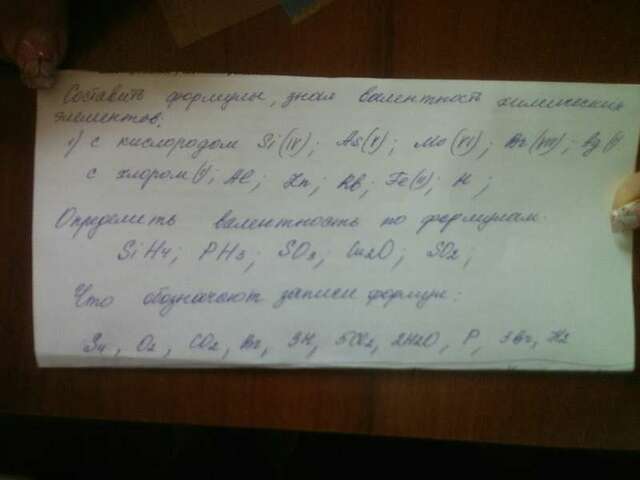 Составить формулы, зная валентность химических
элементов:
1) с кислородом Si(IV); As(V); Mo(VI); Br(VII); Ag(I)
с хлором(I); Al; Zn; Rb; Fe(II); H;
Определить валентность по формулам:
SiH4; PH3; SO3; Cu2O; SO2;
Что обозначают записи формул:
O2, CO2, Br, 3H, 2H2O, P, 3Br, H2